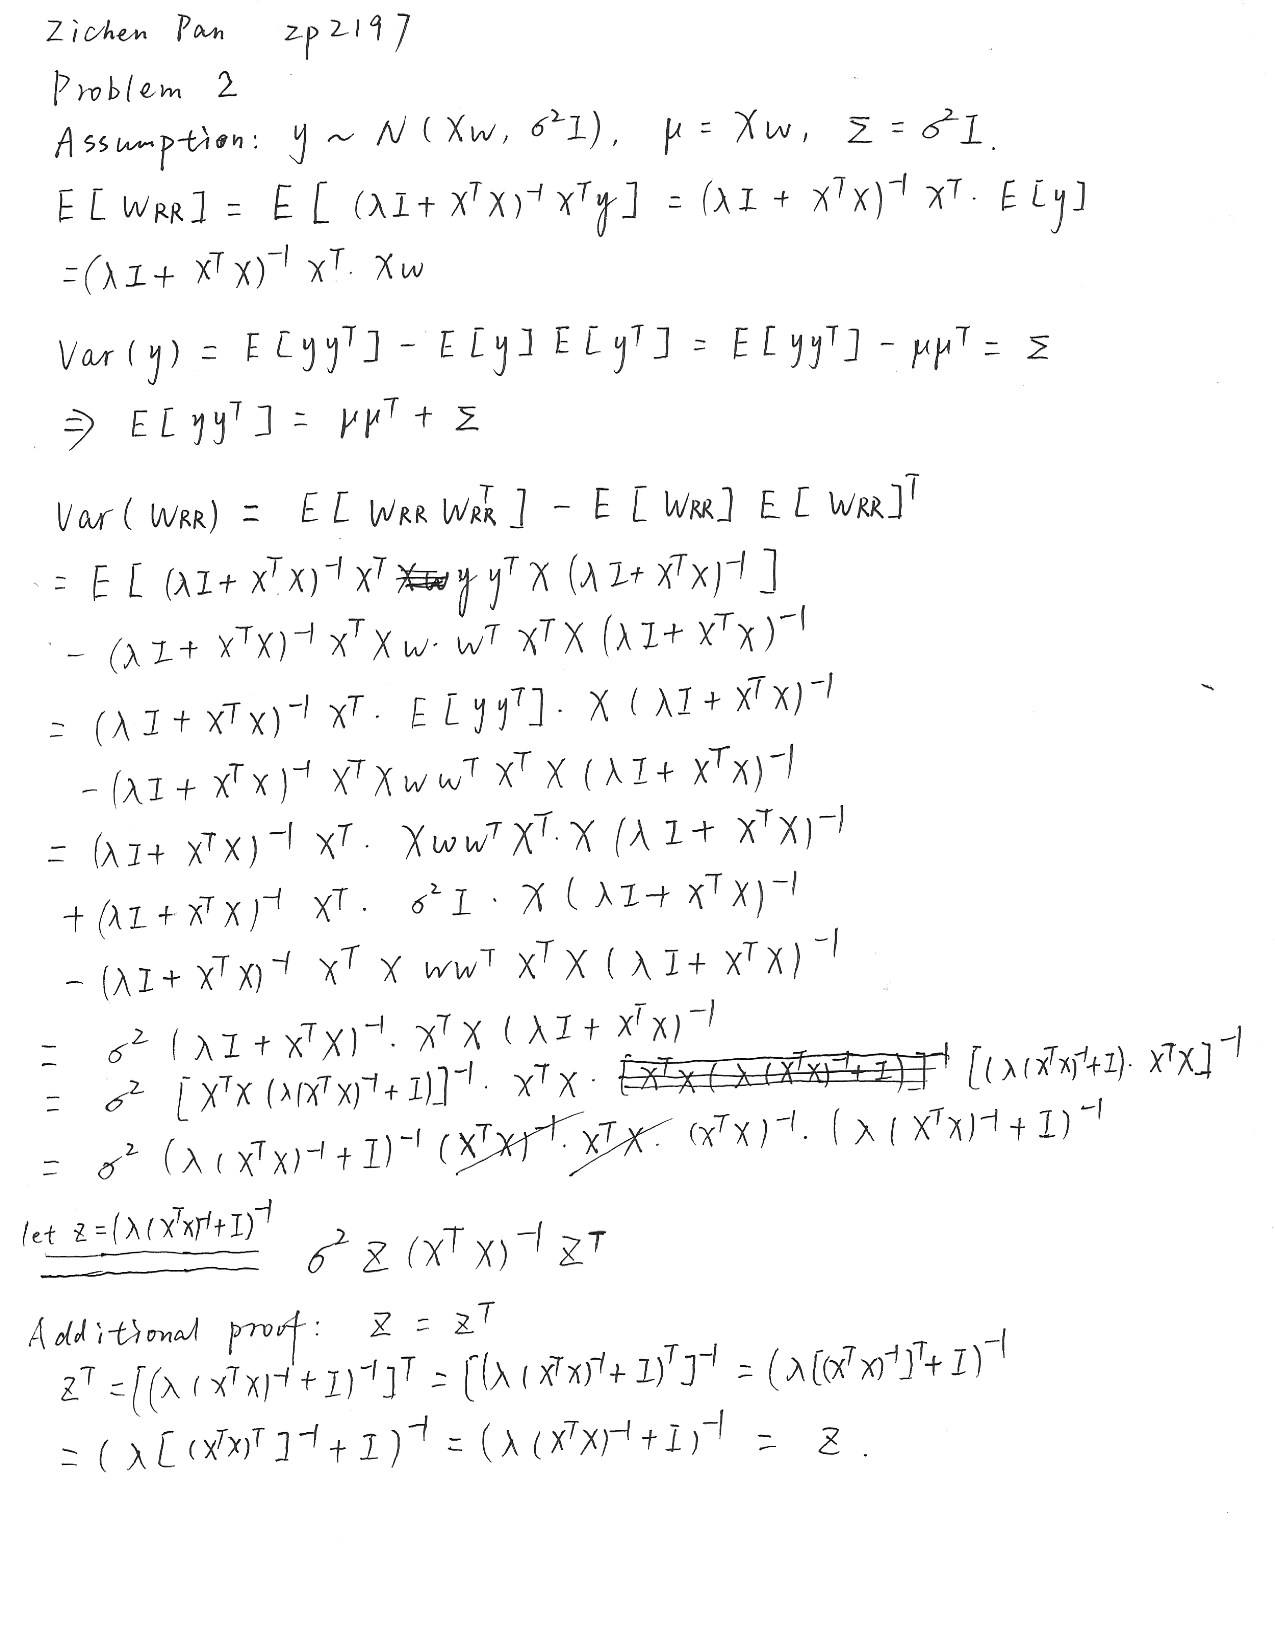 Zichen Pan zp2197
Problem 2
Assumption: y ~ N(Xw, σ²I), μ = Xw, Σ = σ²I.
E[W_RR] = E[(λI + XᵀX)⁻¹Xᵀy] = (λI + XᵀX)⁻¹Xᵀ · E[y]
= (λI + XᵀX)⁻¹Xᵀ · Xw
Var(y) = E[yyᵀ] - E[y]E[yᵀ] = E[yyᵀ] - μμᵀ = Σ
⇒ E[yyᵀ] = μμᵀ + Σ
Var(W_RR) = E[W_RR W_RRᵀ] - E[W_RR] E[W_RR]ᵀ
= E[(λI + XᵀX)⁻¹Xᵀ yyᵀX(λI + XᵀX)⁻¹]
- (λI + XᵀX)⁻¹XᵀXw · wᵀXᵀX(λI + XᵀX)⁻¹
= (λI + XᵀX)⁻¹Xᵀ · E[yyᵀ] · X(λI + XᵀX)⁻¹
- (λI + XᵀX)⁻¹XᵀXwwᵀXᵀX(λI + XᵀX)⁻¹
= (λI + XᵀX)⁻¹Xᵀ · XwwᵀXᵀ · X(λI + XᵀX)⁻¹
+ (λI + XᵀX)⁻¹Xᵀ · σ²I · X(λI + XᵀX)⁻¹
- (λI + XᵀX)⁻¹XᵀXwwᵀXᵀX(λI + XᵀX)⁻¹
= σ²(λI + XᵀX)⁻¹ · XᵀX(λI + XᵀX)⁻¹
= σ²[XᵀX(λ(XᵀX)⁻¹ + I)]⁻¹ · XᵀX · [XᵀX(λ(XᵀX)⁻¹ + I)]⁻¹ [(λ(XᵀX)⁻¹ + I) · XᵀX]⁻¹
= σ²(λ(XᵀX)⁻¹ + I)⁻¹ (XᵀX)⁻¹ · XᵀX · (XᵀX)⁻¹ · (λ(XᵀX)⁻¹ + I)⁻¹
let z = (λ(XᵀX)⁻¹ + I)⁻¹ σ² z (XᵀX)⁻¹ zᵀ
Additional proof: z = zᵀ
zᵀ = [(λ(XᵀX)⁻¹ + I)⁻¹]ᵀ = [(λ(XᵀX)⁻¹ + I)ᵀ]⁻¹ = (λ[(XᵀX)⁻¹]ᵀ + I)⁻¹
= (λ[(XᵀX)ᵀ]⁻¹ + I)⁻¹ = (λ(XᵀX)⁻¹ + I)⁻¹ = z.